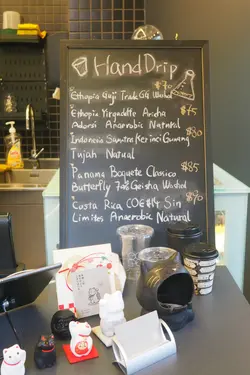 Hand Drip
Ethiopia Guji Trade GG. Washed
Ethiopia Yirgadette Aricha $75
Adorsi Anaerobic Natural
Indonesia Sumatra Kerinci Gunung
Tujah Natual
Panama Boquete Clasico $85
Butterfly Geisha Washed
Costa Rica COE #4 Sin
Limites Anaerobic Natural